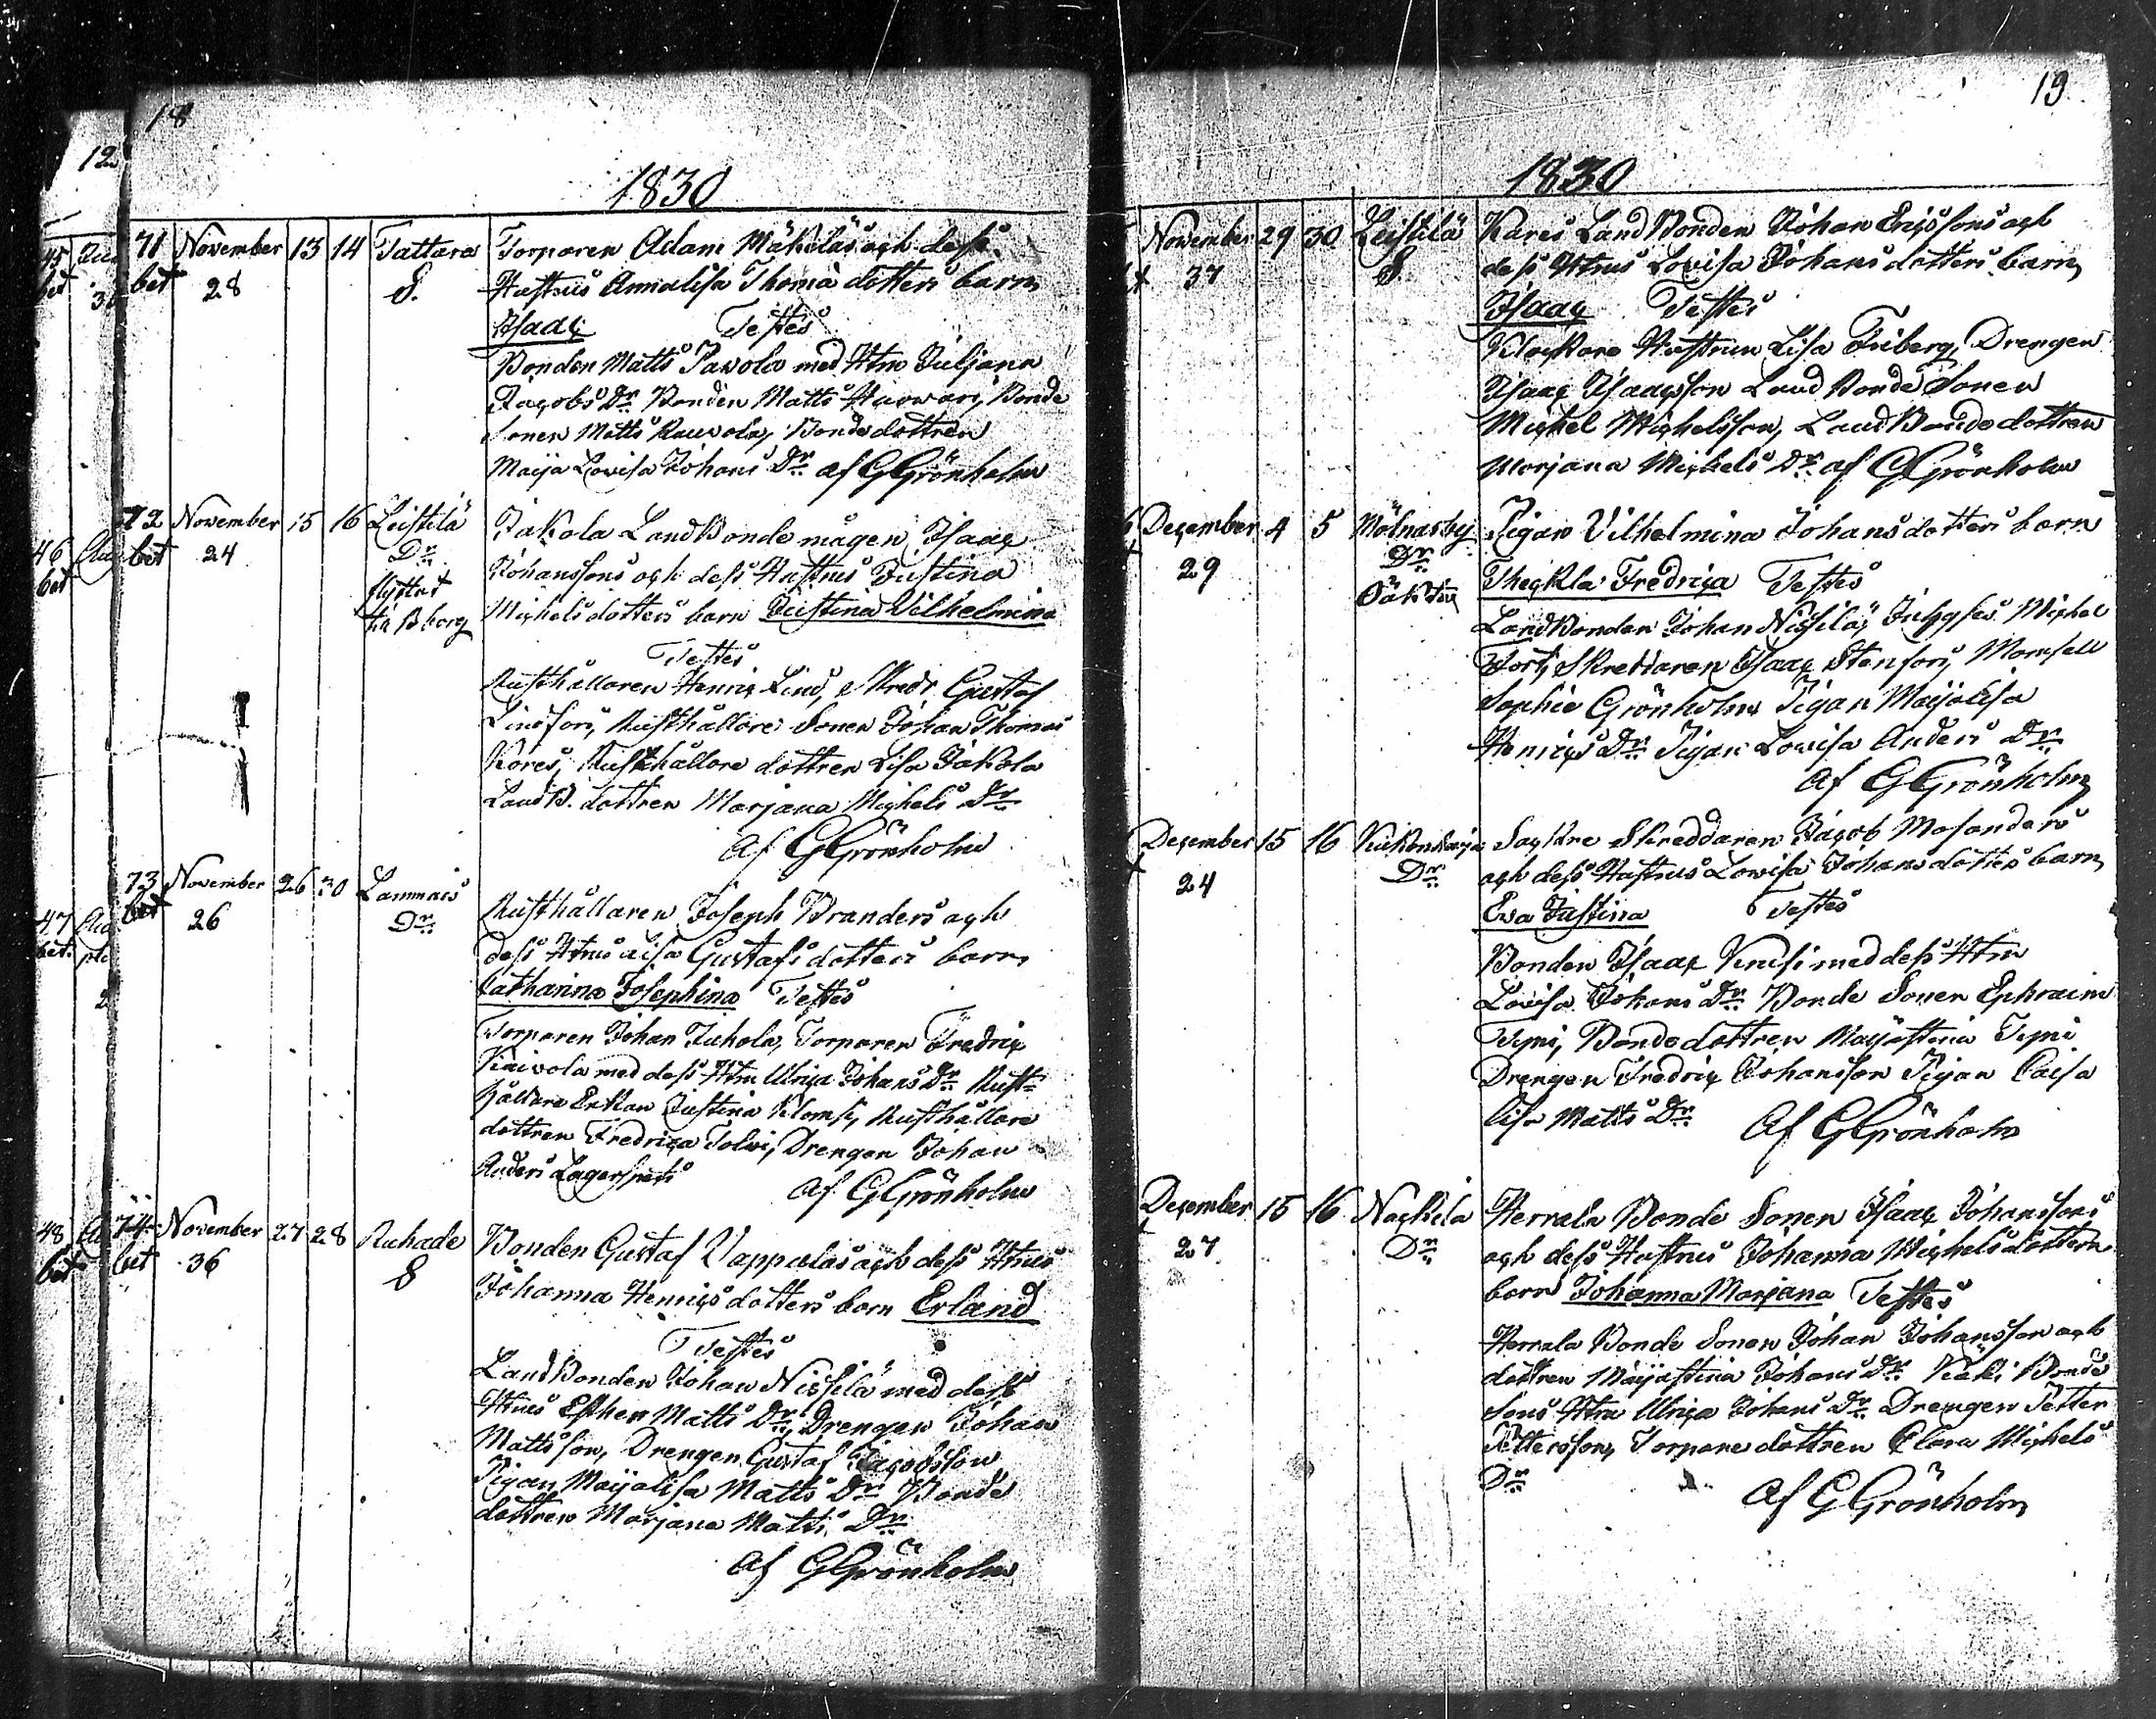 18
12
1830
71 November 13 14 Tattara Torparen Adam Mäkeläs ach dess
bet 28 S. Hustrus Annalisa Thomä dotters barn
Isaac Testes
Bonden Matts Pavola med Htru Juljana
Jacobs Dr Bonden Matts Bonde
Sonen Matts Kauvola, Bonde dottren
Maija Lovisa Johans Dr af G Grönholm
72 November 15 16 Leistilä Jakola LandBonde mågen Isaac
46 bet 24 Dr Johanssons ach dess Hustrus Justina
bet flyttat Michels dotters barn Justina Vilhelmina
til Bborg
Testes
Rusthållaren Henric Lind, Skredr Gustaf
Lindfors, Rusthållare Sonen Johan Thomas
Kares, Rusthållare dottren Lisa Jakola
LandB. dottren Marjana Michels Dr
Af G Grönholm
73 November 26 30 Lammais Rusthållaren Joseph Branders ach
47 bet 26 Dr dess Htrus Caisa Gustafs dotters barn
bet. Catharina Josephina Testes
Torparen Johan Juhola, Torparen Fredric
Kaivola med dess Htru Ulrica Johans Dr Rust
hållare Enkan Justina Klomsi, Rusthållare
dottren Fredrica Tolvi, Drengen Johan
Anders Lagerspets af G Grönholm
48 74 November 27 28 Ruhade Bonden Gustaf Vappulas ach dess Htrus
bet bet 36 S Johanna Henrics dotters barn Erland
Testes
LandBonden Johan Nissilä med dess
Htrus Esther Matts Dr, Drengen Johan
Mattsson, Drengen Gustaf Jacobsson
Pigan Maijalisa Matts Dr Bonde
dottren Marjana Matts Dr
Af G Grönholm
19
1830
November 29 30 Leistilä Kares LandBonden Johan Ericssons ach
37 S dess Htrus Lovisa Johans dotters barn
Isaac Testes
Klockare Hustrun Lisa Friberg, Drengen
Isaac Isaacsson LandBonde Sonen
Michel Michelsson, LandBonde dottren
Marjana Michels Dr af G Grönholm
December 4 5 Mölnarby Pigan Vilhelmina Johans dotters barn
29 Dr Theckla Fredrica Testes
Oäkta LandBonden Johan Nissilä, Michel
Skreddaren Isaac Stenfors, Mamsell
Sophie Grönholm Pigan Maijalisa
Henrics Dr Pigan Lovisa Anders Dr
Af G Grönholm
December 15 16 Kukonharja Sockne Skreddaren Jacob Masanders
24 Dr ach dess Hustrus Lovisa Johans dotters barn
Eva Justina Testes
Bonden Isaac Knusi med dess Htru
Lovisa Johans Dr Bonde Sonen Ephraim
Tymi, Bonde dottren Maijastina Tymi
Drengen Fredric Johansson Pigan Caisa
Lisa Matts Dr Af G Grönholm
December 15 16 Nackila Herrala Bonde Sonen Isaac Johanssons
27 Dr ach dess Hustrus Johanna Michelsdotters
barn Johanna Marjana Testes
Herrala Bonde Sonen Johan Johansson ach
dottren Maijastina Johans Dr Käki Bonde
Sons Htru Ulrica Johans Dr Drengen Petter
Pettersson, Torpare dottren Clara Michels
Dr Af G Grönholm